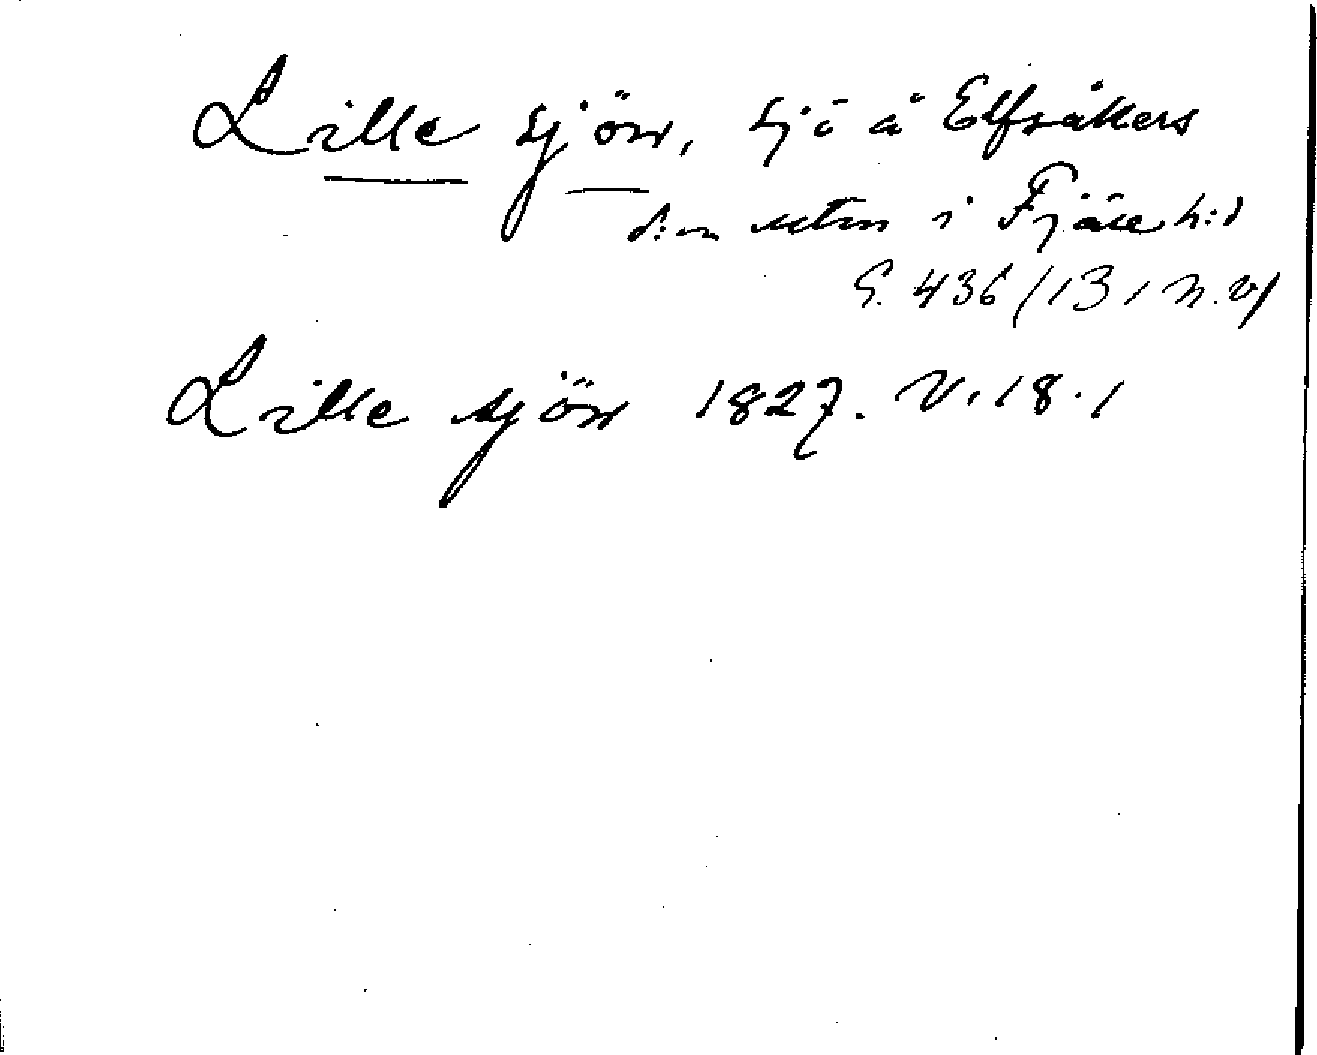 Lille sjön, sjö å Elfsåkers
s:n utm i Fjäre h:d
G. 436 / 13 / n.v/
Lille sjön 1827. V. 18. 1